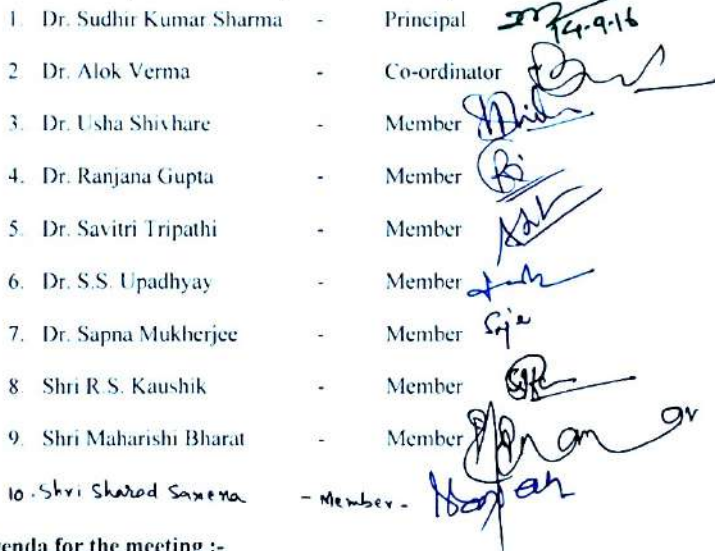 1. Dr. Sudhir Kumar Sharma - Principal 14-9-16
2 Dr. Alok Verma - Co-ordinator
3. Dr. Usha Shivhare - Member
4. Dr. Ranjana Gupta - Member
5. Dr. Savitri Tripathi - Member
6. Dr. S.S. Upadhyay - Member
7. Dr. Sapna Mukherjee - Member
8 Shri R.S. Kaushik - Member
9. Shri Maharishi Bharat - Member
10. Shri Sharad Saxena - Member -
enda for the meeting :-